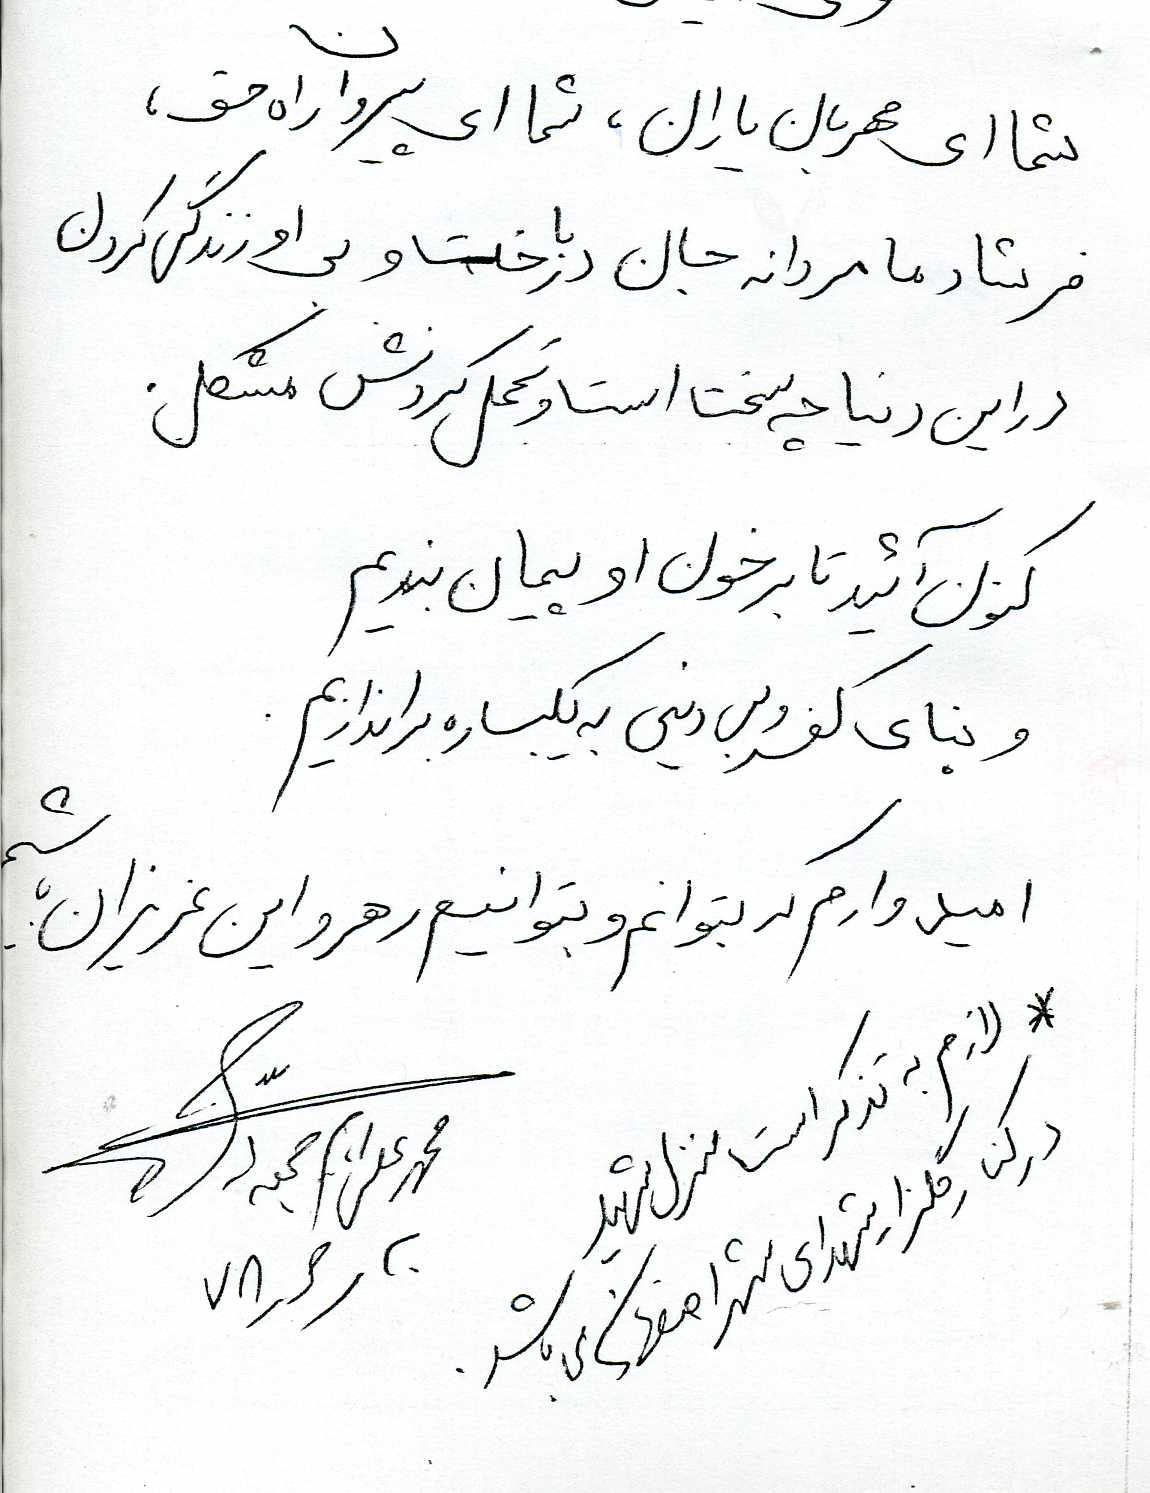 شما ای مهربان یاران ، شما ای پیروان راه حق ،
فرشاد ما مردانه جان در باخت و بی او زندگی کردن
در این دنیا چه سخت است و تحمل کردنش مشکل .
کنون آئید تا بر خون او پیمان بندیم
و بنای کفر و بی دینی به یکباره براندازیم .
امیدوارم که بتوانم و بتوانیم رهرو این عزیزان باشیم
* لازم به تذکر است منزل شهید
در کنار گلزار شهدای شهر اصفهان می باشد .
محمد علی
۷۸